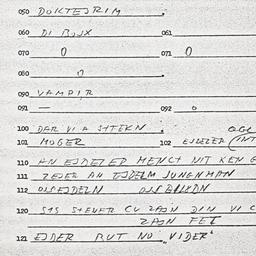 050 DOKTEJRIM
060 DI BUJX 061
070 0 071 0
080 0
090 VAMPIR
091 — 092 0
100 DER VI A SHTEKN
101 MOGER 102 EJDELER (INT
110 AN EJDELER MENCH NIT KEN G
111 ZEJER AN EJDELM JUNGNMAN
112 OJSEJDELN
120 S'IS SHVER CU ZAJN DIN VI C
ZAJN FET
121 EJDER BUT NO "VIDER"